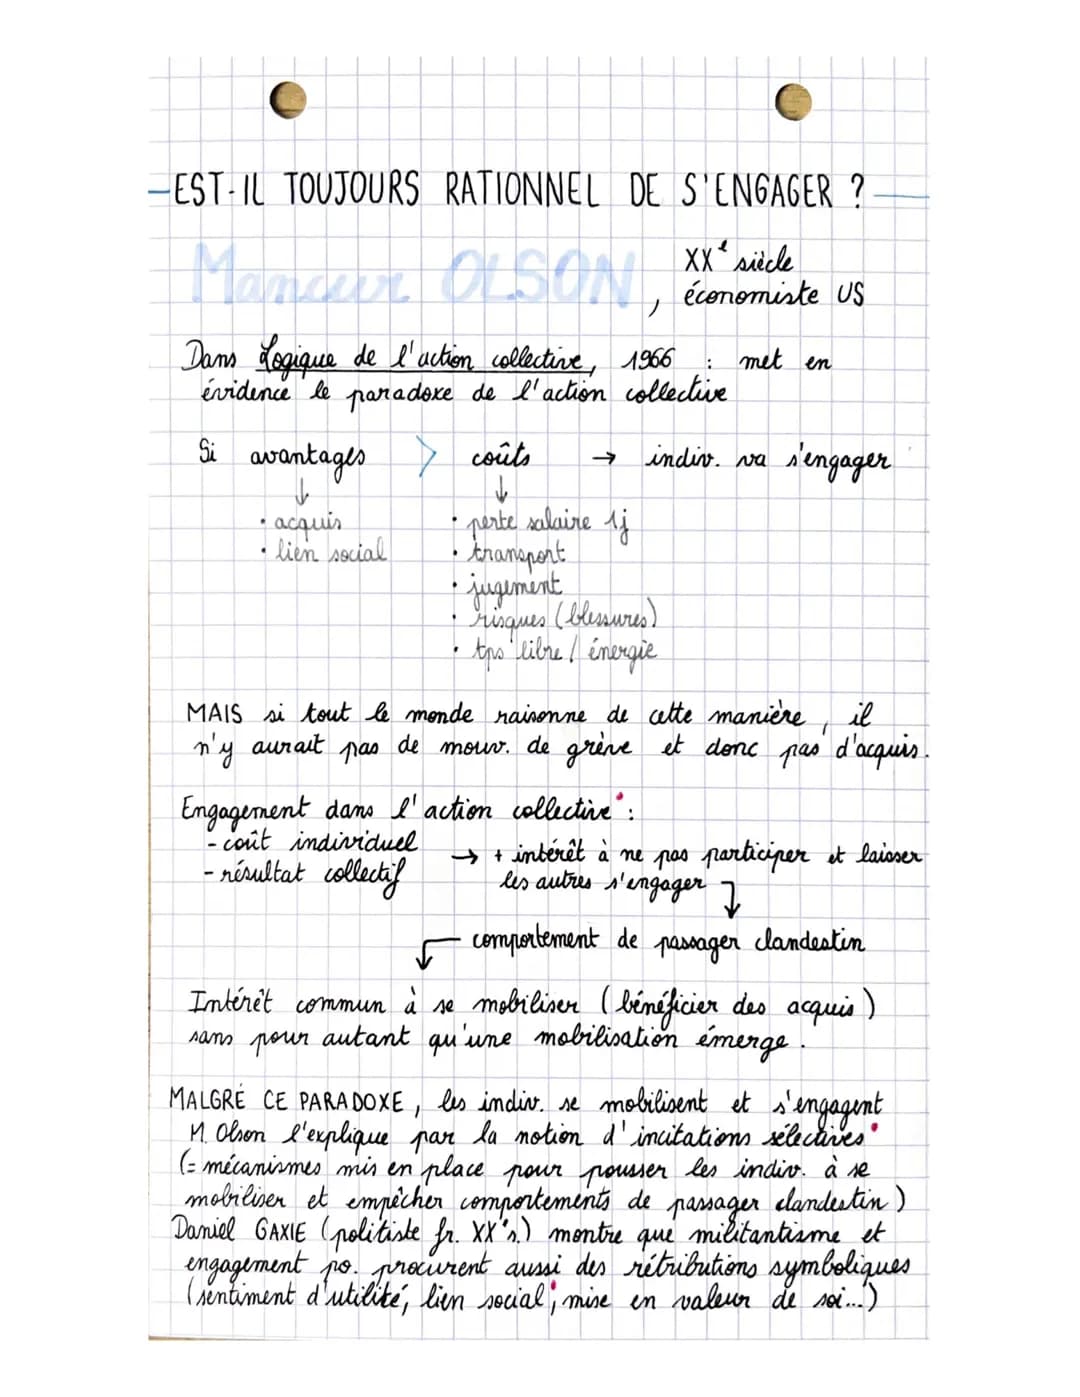 EST-IL TOUJOURS RATIONNEL DE S'ENGAGER ?
Mancur OLSON, XXe siècle
économiste US
Dans Logique de l'action collective, 1966 : met en
évidence le paradoxe de l'action collective
Si avantages > coûts → indiv. va s'engager
↓ ↓
• acquis • perte salaire 1j
• lien social • transport
• jugement
• risques (blessures)
• tps libre / énergie
MAIS si tout le monde raisonne de cette manière, il
n'y aurait pas de mouv. de grève et donc pas d'acquis.
Engagement dans l'action collective• :
- coût individuel
- résultat collectif
→ + intérêt à ne pas participer et laisser
les autres s'engager
comportement de passager clandestin
Intérêt commun à se mobiliser (bénéficier des acquis)
sans pour autant qu'une mobilisation émerge.
MALGRÉ CE PARADOXE, les indiv. se mobilisent et s'engagent
M. Olson l'explique par la notion d'incitations sélectives•
(= mécanismes mis en place pour pousser les indiv. à se
mobiliser et empêcher comportements de passager clandestin)
Daniel GAXIE (politiste fr. XX's.) montre que militantisme et
engagement po. procurent aussi des rétributions symboliques
(sentiment d'utilité, lien social, mise en valeur de soi...)